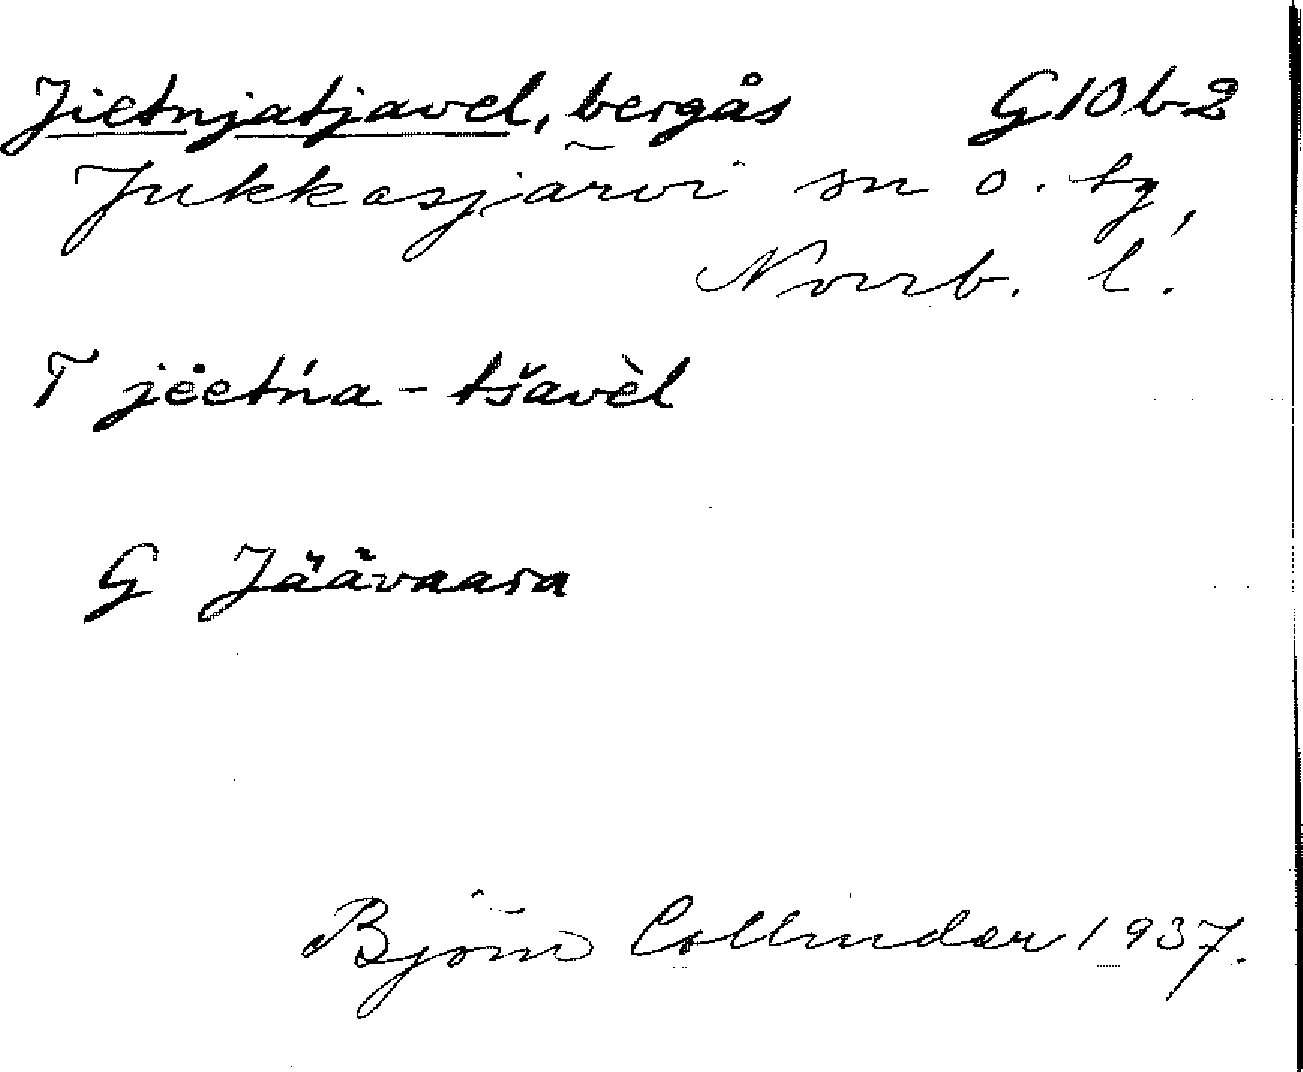 Jietnjatjavel, bergås G10b2
Jukkasjärvi sn o. tg,
Norrb. l.
T jėetńa-tšavèl
G Jäävaara
Björn Collinder 1937.